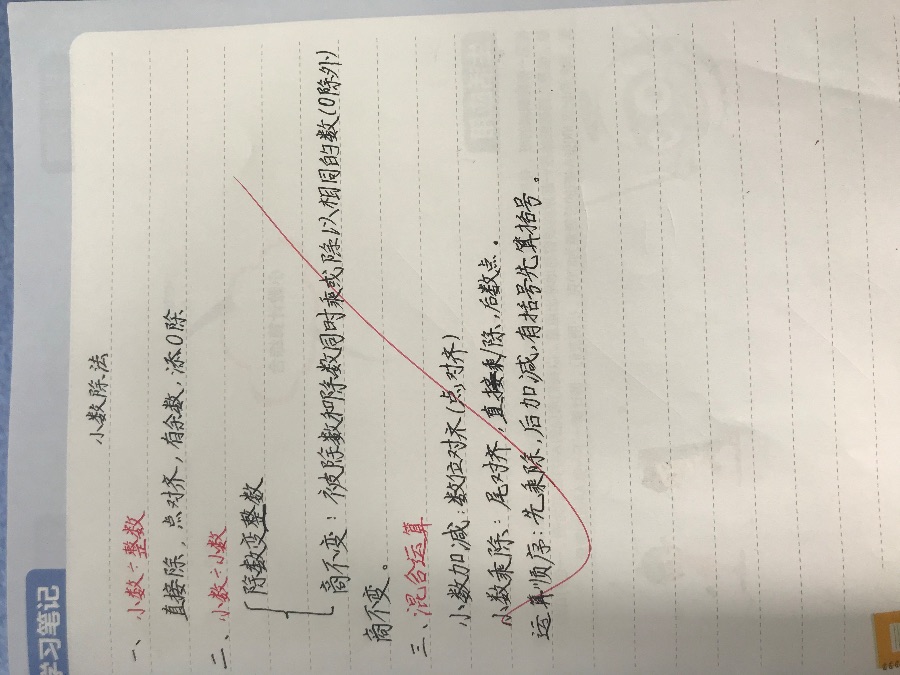 学习笔记
小数除法
一、小数÷整数
直接除，点对齐，有余数，添0除
二、小数÷小数
除数变整数
商不变：被除数和除数同时乘或除以相同的数(0除外)
商不变。
三、混合运算
小数加减：数位对齐(点对齐)
小数乘除：尾对齐，直接乘/除，后数点。
运算顺序：先乘除，后加减，有括号先算括号。